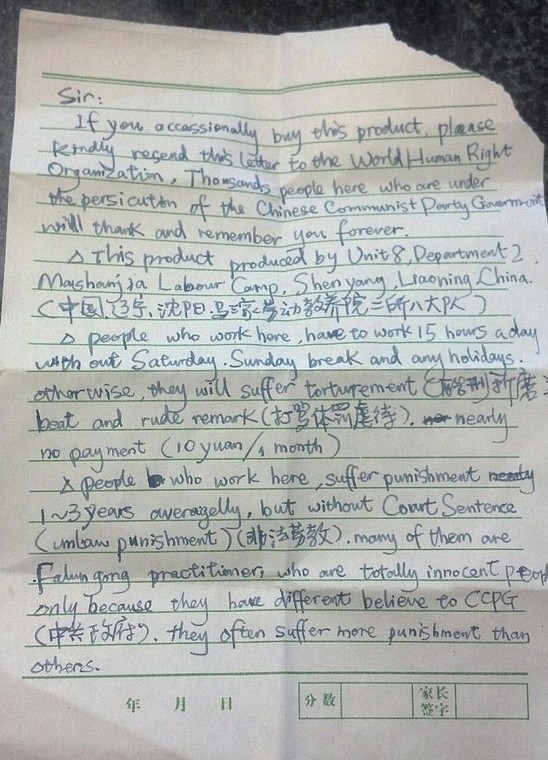 Sir:
If you occassionally buy this product, please
kindly resend this letter to the World Human Right
Organization, Thousands people here who are under
the persicuton of the Chinese Communist Party Government
will thank and remember you forever.
△ This product produced by Unit 8, Department 2.
Mashanjia Labour Camp, Shen yang, Liaoning, China.
(中国, 辽宁, 沈阳, 马三家劳动教养院二所八大队)
△ people who work here, have to work 15 hours a day
with out Saturday. Sunday break and any holidays.
otherwise, they will suffer torturement (酷刑折磨)
beat and rude remark (打骂体罚虐待). nearly
no payment (10 yuan/1 month)
△ people who work here, suffer punishment
1~3 years averagelly, but without Court Sentence
(unlaw punishment) (非法劳教). many of them are
Falun gong practitioner, who are totally innocent people
only because they have different believe to CCPG
(中共政府). they often suffer more punishment than
others.
年 月 日 分数 家长签字